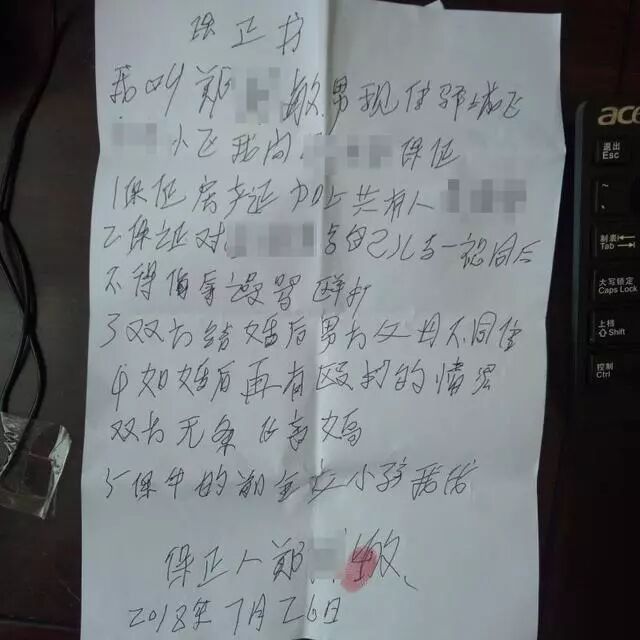 保正书
我叫郑 敏男现住郭城飞
小区我向 保征
1保征房产证加上共有人
2保证对 与自己儿女一视同仁
不得侮辱谩骂 殴打
3双方结婚后男方父母不同住
4如婚后再有殴打的情况
双方无条件离婚
5保中的 小孩
保正人郑 敏
2018年7月26日
acer
退出
Esc
~
制表
Tab
大写锁定
Caps Lock
上档
Shift
控制
Ctrl